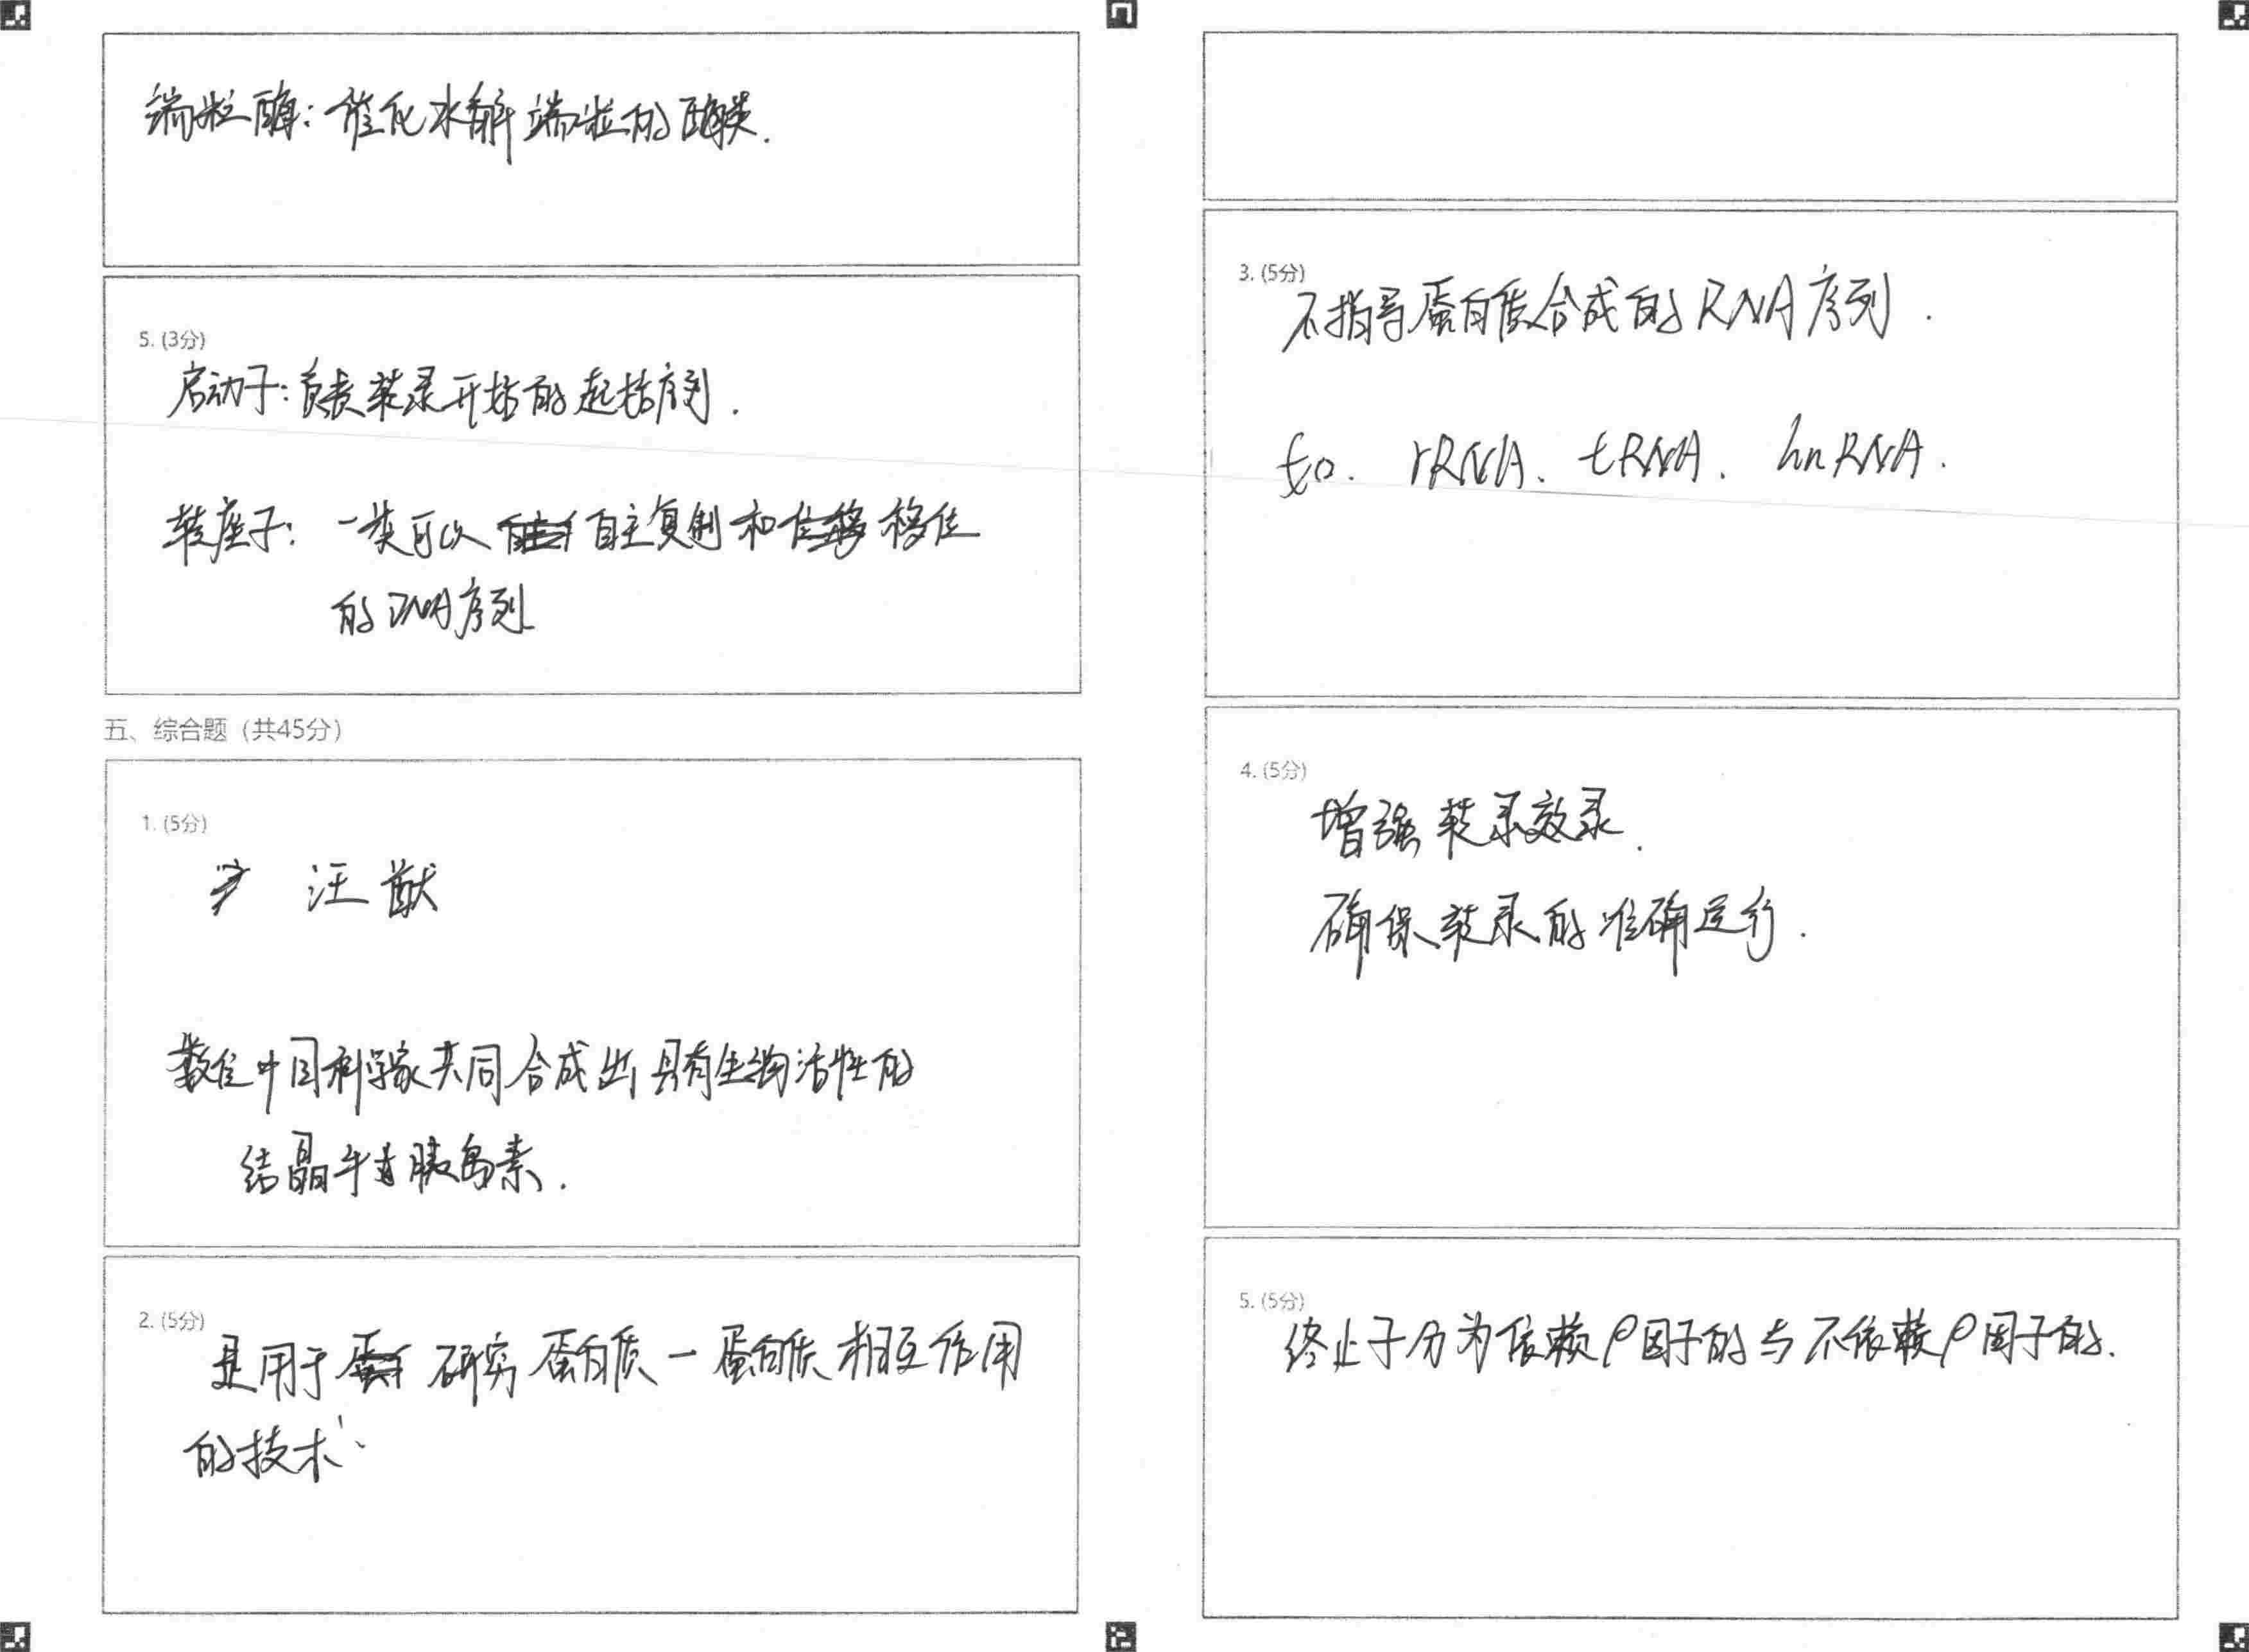 端粒酶：催化水解端粒的酶类．
5. (3分)
启动子：负责转录开始的起始序列．
转座子： 一类可以 自主复制和 移位
的DNA序列
五、综合题（共45分）
1. (5分)
汪猷
数位中国科学家共同合成出具有生物活性的
结晶牛胰岛素．
2. (5分)
是用于 研究 蛋白质－蛋白质 相互作用
的技术．
3. (5分)
不指导蛋白质合成的RNA序列．
如． rRNA、tRNA、hnRNA．
4. (5分)
增强转录效录．
确保转录的准确运行．
5. (5分)
终止子分为依赖ρ因子的与不依赖ρ因子的．